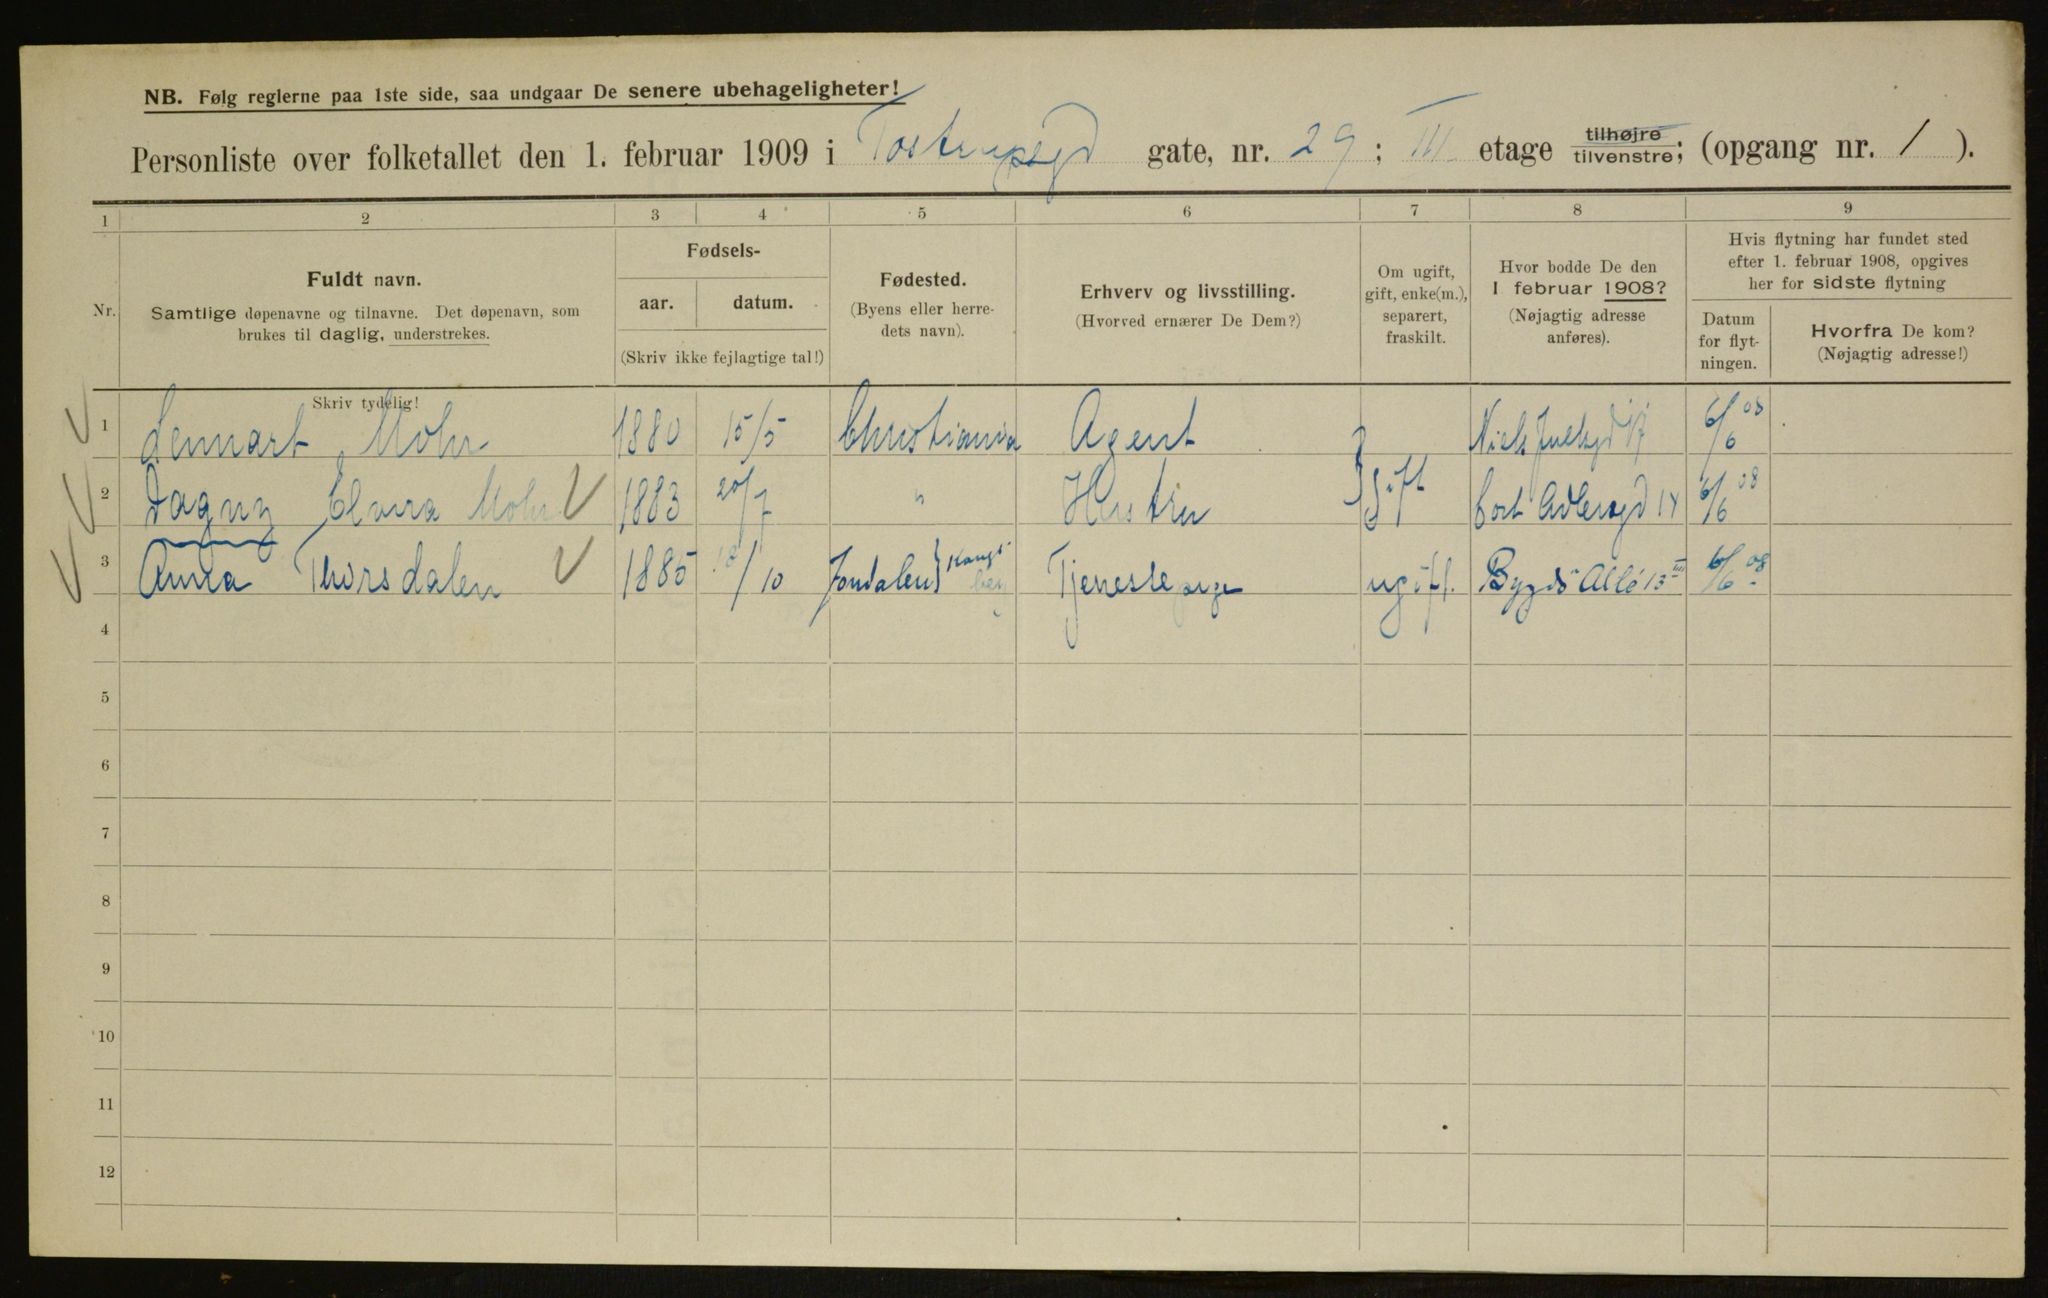 NB. Følg reglerne paa 1ste side, saa undgaar De senere ubehageligheter!
Personliste over folketallet den 1. februar 1909 i Tostrupsgd gate, nr. 29; III etage tilhøjre tilvenstre; (opgang nr. 1).
1 2 3 4 5 6 7 8 9
Nr.
Fuldt navn.
Samtlige døpenavne og tilnavne. Det døpenavn, som
brukes til daglig, understrekes.
Skriv tydelig!
Fødsels-
aar. datum.
(Skriv ikke fejlagtige tal!)
Fødested.
(Byens eller herre-
dets navn).
Erhverv og livsstilling.
(Hvorved ernærer De Dem?)
Om ugift,
gift, enke(m.),
separert,
fraskilt.
Hvor bodde De den
1 februar 1908?
(Nøjagtig adresse
anføres).
Hvis flytning har fundet sted
efter 1. februar 1908, opgives
her for sidste flytning
Datum
for flyt-
ningen.
Hvorfra De kom?
(Nøjagtig adresse!)
1 Lennart Mohr 1880 15/5 Christiania Agent } Niels Juelsgd 17 6/6 08
2 Dagny Elvira Mohr 1883 20/7 " Hustru gift Cort Adlersgd 14 6/6 08
3 Anna Thorsdalen 1885 18/10 Jondalen } Kongsberg Tjenestepige ugift. Bygdö Allé 13 III 6/6 08
4
5
6
7
8
9
10
11
12